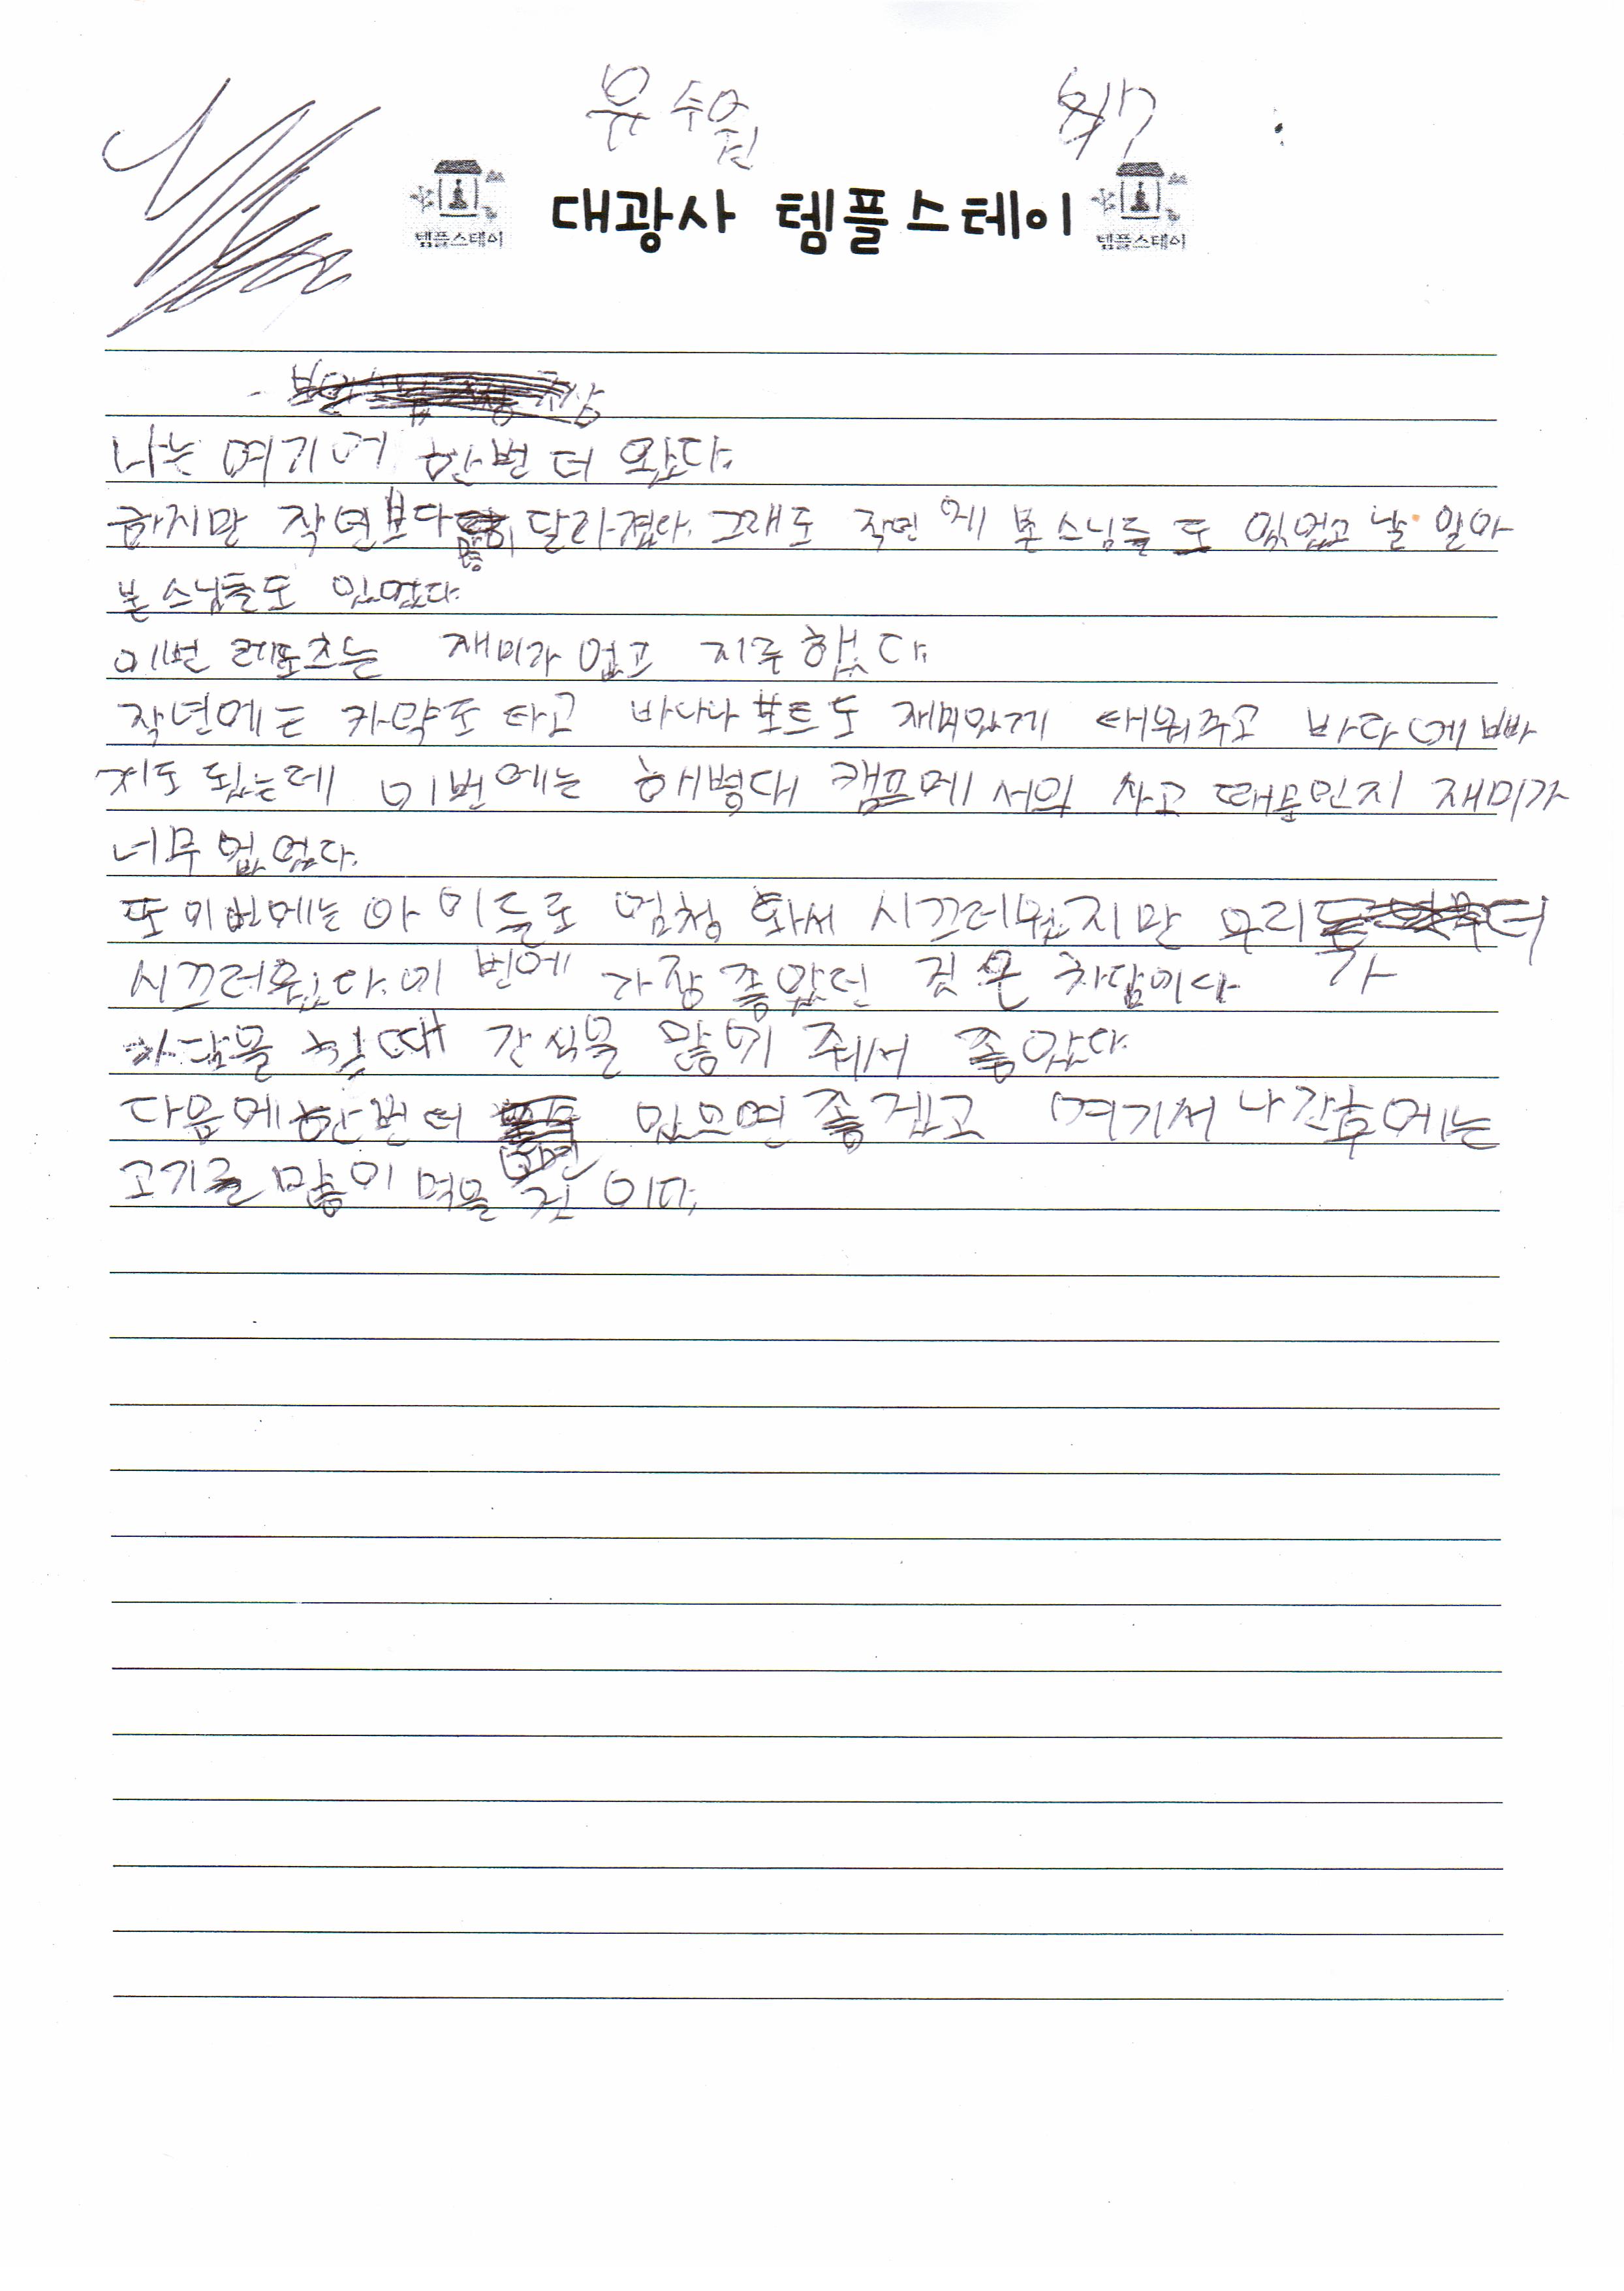 유수원
템플스테이 대광사 템플스테이 템플스테이
나는 여기에 한번 더 왔다.
하지만 작년보다 많이 달라졌다. 그래도 작년에 본 스님들도 있었고 날 알아
본 스님들도 있었다.
이번 레포츠는 재미가 없고 지루했다.
작년에는 카약도 타고 바나나보트도 재미있게 태워주고 바다에 빠
져도 됬는데 이번에는 해병대 캠프에서의 사고 때문인지 재미가
너무 없었다.
또 이번에는 아이들도 엄청 와서 시끄러웠지만 우리가 더
시끄러웠다. 이번에 가장 좋았던 것은 차담이다
차담을 할때 간식을 많이 줘서 좋았다.
다음에 한번 더 있으면 좋겠고 여기서 나간후에는
고기를 많이 먹을 것이다.